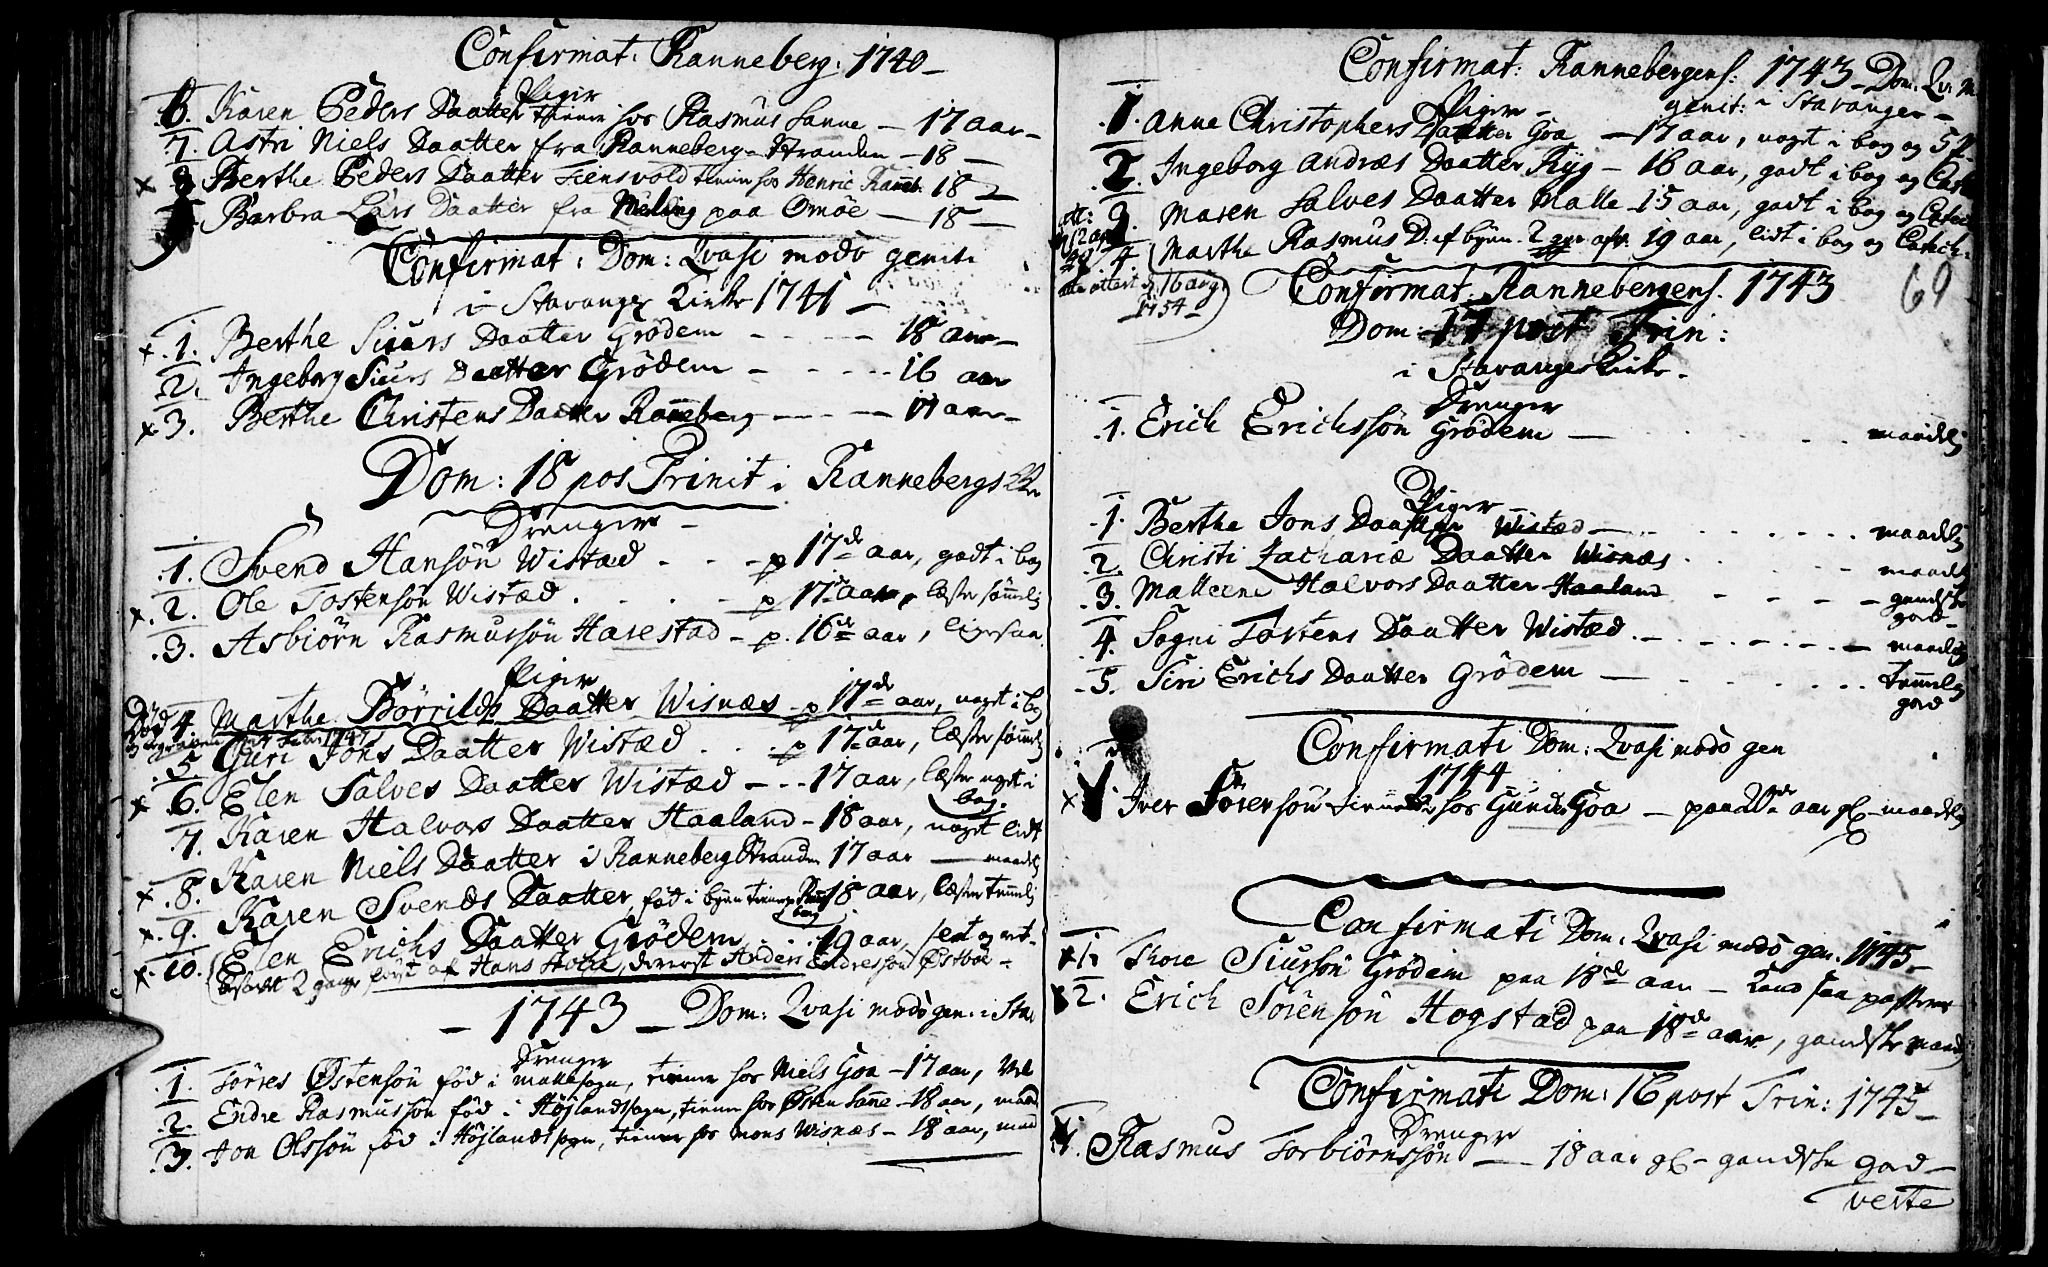 Confirmat: Ranneberg: 1740 –
Piger
6. Karen Peders Daatter tienner hos Rasmus Sanne – 17 aar –
7. Astri Niels Daatter fra Ranneberg-Stranden – 18 –
x 8. Berthe Peders Daatter Tiensvold tienner hos Henric Ranneb. 18 –
9. Barbra Lars Daatter fra Meling paa Omöe – 18 –
Confirmat: Dom: Qvasi modo geniti
i Stavanger Kirke 1741 –
x .1. Berthe Siurs Daatter Grödem - - - - - 18 aar –
.2. Ingeborg Siurs Daatter Grödem - - - - - 16 aar
x 3. Berthe Christens Daatter Ranneberg - - - - 17 aar –
Dom: 18 pos Trinit i Rannebergs
Drenger –
.1. Svend Hansön Wistæd - - - p 17de aar, godt i bog
x .2. Ole Tostensön Wistæd . . . . p 17 aar, læste sömmelig
.3. Asbiörn Rasmussön Harestad – p. 16de aar, ligesaa
Piger
Död 4. Marthe Börrilds Daatter Wisnæs – p 17de aar, noget i bog
.5. Guri Jons Daatter Wistæd . . . p 17de aar, læste sömmelig
x 6. Elen Salves Daatter Wistæd - - - 17 aar, læste noget i
bog.
7. Karen Halvors Daatter Haaland – 18 aar, noget lidt
x .8. Karen Niels Daatter i Ranneberg Stranden 17 aar — maadelig
x .9. Karen Svends Daatter, föd i byen tienner 18 aar, læste temmelig
x .10. Elen Erichs Daatter Grödem . . . 19 aar,
2 gange, först af Hans, dernest Anders Endresson Östboe –
– 1743 – Dom: Qvasi modo gen: i Sta
Drenger
.1. Törres Östensön föd i mallesogn, tienner hos Niels Goa – 17 aar, vel
.2. Endre Rasmussön föd i Höjlandssogn, tienner hos Östen Sanne – 18 aar, maad
.3. Jon Olssön föd i Höjlandssogn, tienner hos Mons Wisnæs – 18 aar, maad
Confirmat: Rannebergens: 1743 – Dom: Qv: M
Piger – genit: i Stavanger –
.1. Anne Christophers Daatter Goa – 17 aar, noget i bog og
.2. Ingeborg Andræs Daatter Ryg – 16 aar, godt i bog og Cate
3. Maren Salves Daatter Malle 15 aar, godt i bog og Catech
4. Marthe Rasmus D: af byen 19 aar, lidt i bog og Catech:
1754 –
69
Confirmat. Rannebergens. 1743
Dom: 17 post Trin:
i Stavanger Kirke –
Drenger
.1. Erich Erichssön Grödem — . . . . . maadelig
Piger –
.1. Berthe Jons Daatter Wistæd — . . . . . maadelig
.2. Christi Zachariæ Daatter Wisnæs . . . . maadel
.3. Malleene Halvors Daatter Haaland . - - - gandske
god –
.4. Sogni Tostens Daatter Wistæd . - . - . - maadelig
.5. Siri Erichs Daatter Grödem — . . . . temmelig
god
Confirmati Dom: Qvasi modo gen
1744
x 1 Iver Sörensön tiennende hos Gunder Goa – paa 20de aar gl – maadelig
Confirmati Dom: Qvasi modo gen. 1745 –
x 1. Thore Siursön Grödem paa 18de aar – Kand saa passere
x 2. Erich Sörensön Hogstad paa 18de aar, gandske maadel
Confirmati Dom: 16 post Trin: 1745 –
Drenger
1. Rasmus Torbiörnssön — 18 aar gl – gandske god –
verte